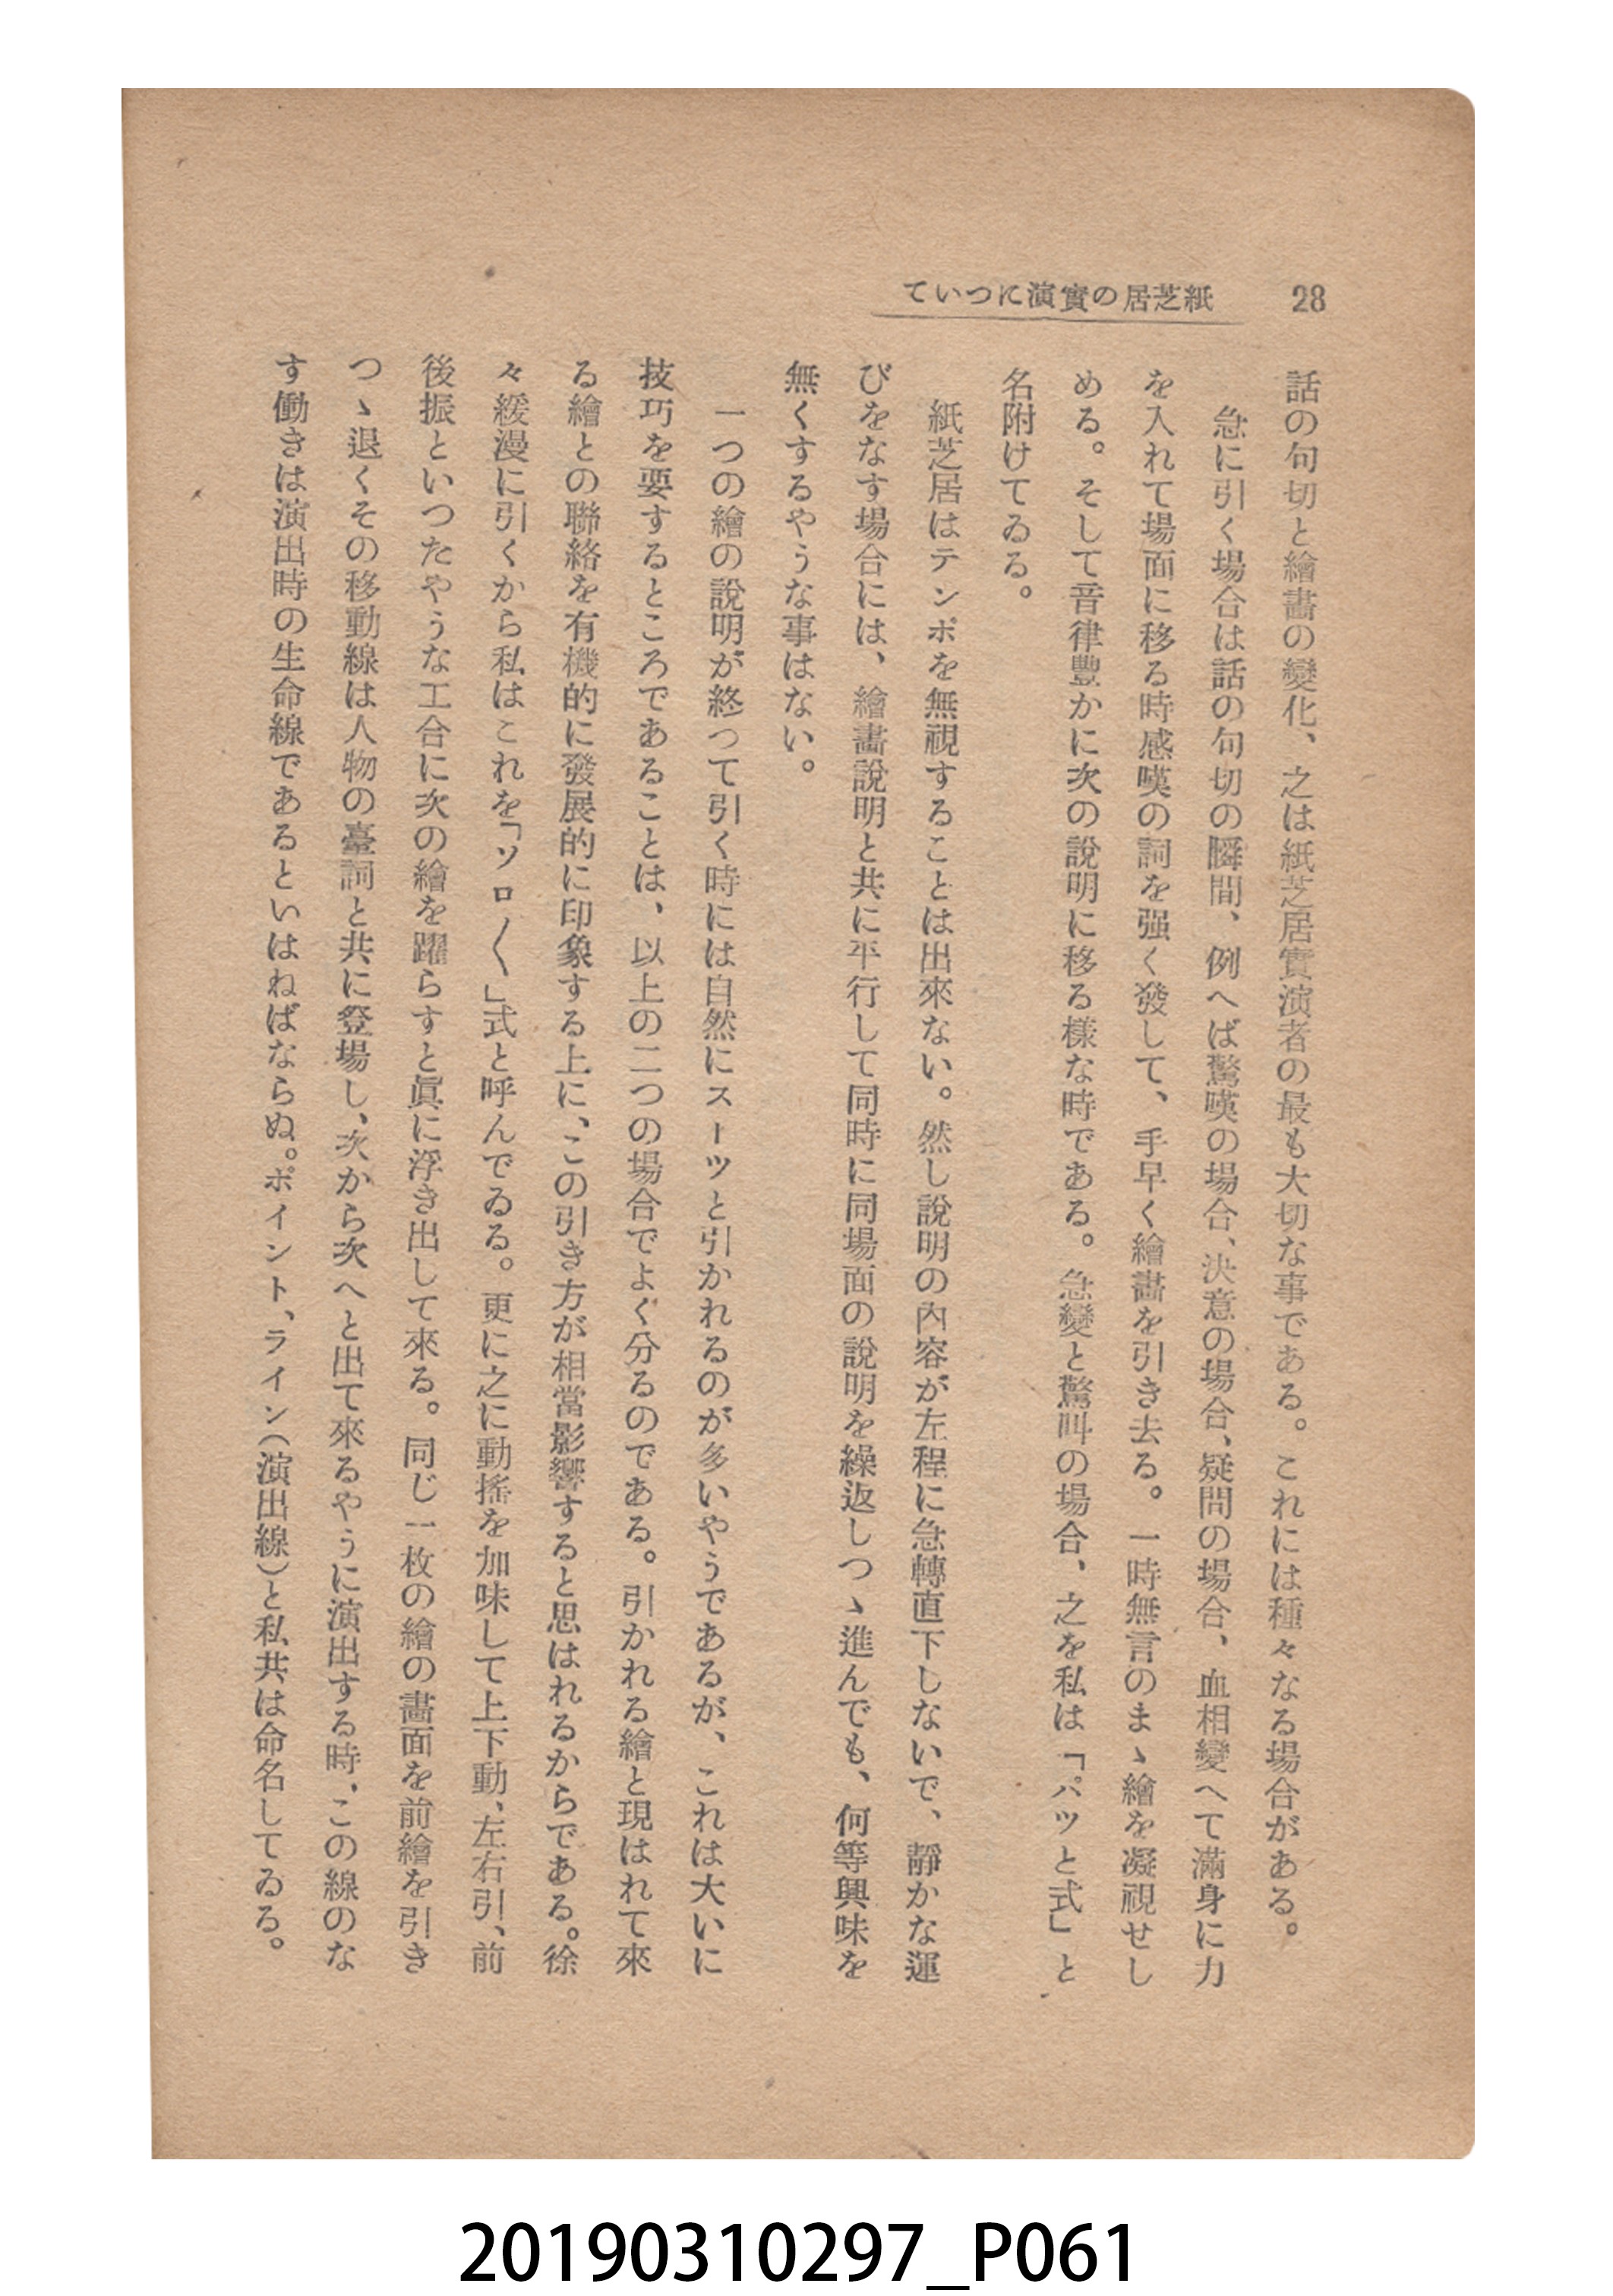 28
紙芝居の實演について
話の句切と繪畫の變化、之は紙芝居實演者の最も大切な事である。これには種々なる場合がある。
急に引く場合は話の句切の瞬間、例へば驚嘆の場合、決意の場合、疑問の場合、血相變へて滿身に力
を入れて場面に移る時感嘆の詞を强く發して、手早く繪畫を引き去る。一時無言のまゝ繪を凝視せし
める。そして音律豐かに次の說明に移る樣な時である。急變と驚叫の場合、之を私は「パツと式」と
名附けてゐる。
紙芝居はテンポを無視することは出來ない。然し說明の內容が左程に急轉直下しないで、靜かな運
びをなす場合には、繪畫說明と共に平行して同時に同場面の說明を繰返しつゝ進んでも、何等興味を
無くするやうな事はない。
一つの繪の說明が終つて引く時には自然にスーツと引かれるのが多いやうであるが、これは大いに
技巧を要するところであることは、以上の二つの場合でよく分るのである。引かれる繪と現はれて來
る繪との聯絡を有機的に發展的に印象する上に、この引き方が相當影響すると思はれるからである。徐
々緩漫に引くから私はこれを「ソロ〱」式と呼んでゐる。更に之に動搖を加味して上下動、左右引、前
後振といつたやうな工合に次の繪を躍らすと眞に浮き出して來る。同じ一枚の繪の畫面を前繪を引き
つゝ退くその移動線は人物の臺詞と共に登場し、次から次へと出て來るやうに演出する時、この線のな
す働きは演出時の生命線であるといはねばならぬ。ポイント、ライン(演出線)と私共は命名してゐる。
20190310297_P061